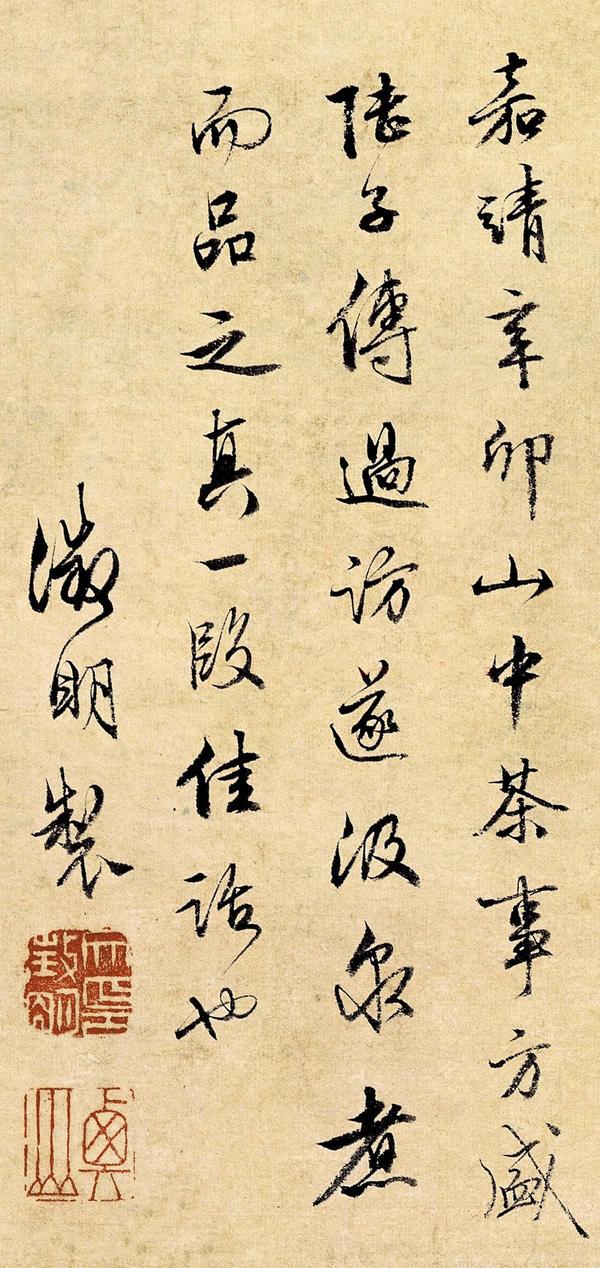 嘉靖辛卯山中茶事方盛
陸子傳過訪遂汲泉煮
而品之真一段佳話也
徵明製